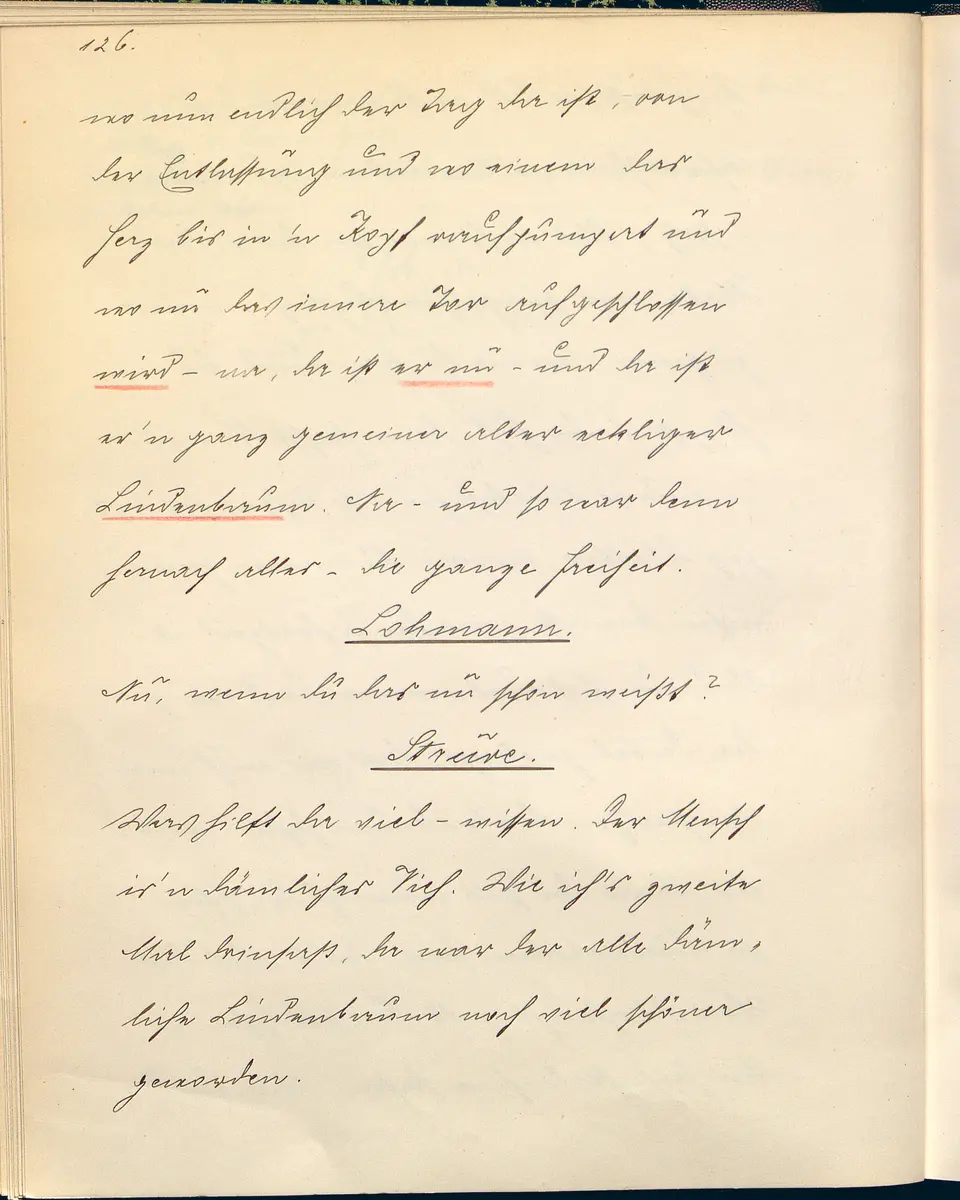 126.
wo nun endlich der Tag da ist, von
der Entlassung und wo einem das
Herz bis in 'n Kopf raufpumpert und
wo nu das innere Tor aufgeschlossen
wird – na, da ist er nu – und da ist
er'n ganz gemeiner alter eckliger
Lindenbaum. Na – und so war denn
hernach alles – die ganze Freiheit.
Lohmann.
Nu, wenn du das nu schon weißt?
Struve.
Was hilft da viel – wissen. Der Mensch
is'n dämliches Vieh. Wie ich's zweite
Mal drinsaß, da war der alte däm-
liche Lindenbaum noch viel schöner
geworden.